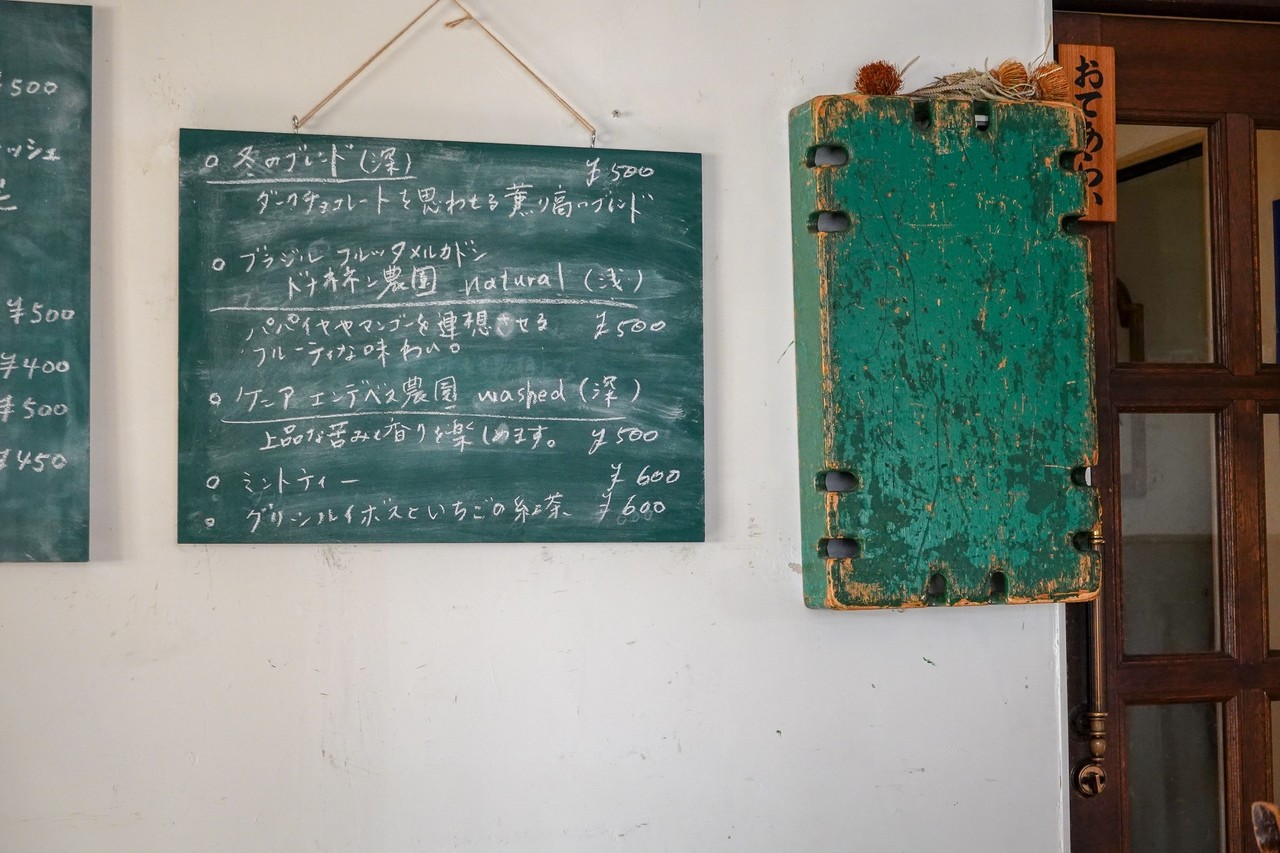 ¥500
ッシェ
¥500
¥400
¥500
¥450
○ 冬のブレンド(深) ¥500
ダークチョコレートを思わせる薫り高いブレンド
○ ブラジル フルッタメルカドン
ドナネネン農園 natural (浅)
パパイヤやマンゴーを連想させる ¥500
フルーティな味わい。
○ ケニア エンデベス農園 washed (深)
上品な苦みと香りを楽しめます。 ¥500
○ ミントティー ¥600
○ グリーンルイボスといちごの紅茶 ¥600
おてあらい